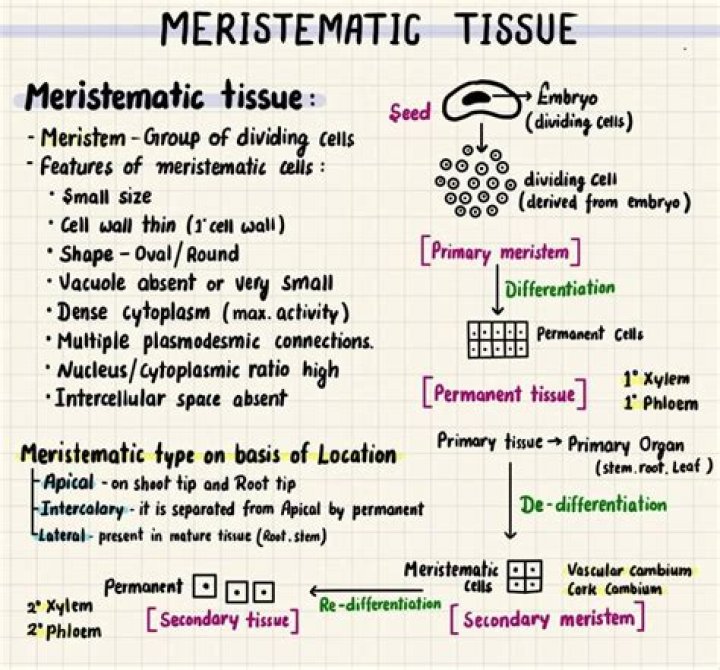 MERISTEMATIC TISSUE
Meristematic tissue:
- Meristem - Group of dividing cells
- Features of meristematic cells :
• Small size
• Cell wall thin (1° cell wall)
• Shape - Oval/Round
• Vacuole absent or very small
• Dense cytoplasm (max. activity)
• Multiple plasmodesmic connections.
• Nucleus/Cytoplasmic ratio high
• Intercellular space absent
Seed
Embryo
(dividing cells)
dividing cell
(derived from embryo)
[Primary meristem]
Differentiation
Permanent Cells
[Permanent tissue]
1° Xylem
1° Phloem
Meristematic type on basis of Location
Apical - on shoot tip and Root tip
Intercalary - it is separated from Apical by permanent
Lateral - present in mature tissue (Root.stem)
Primary tissue → Primary Organ
(stem.root.Leaf)
De-differentiation
Meristematic
cells
Vascular cambium
Cork Cambium
[Secondary meristem]
Re-differentiation
Permanent
[Secondary tissue]
2° Xylem
2° Phloem